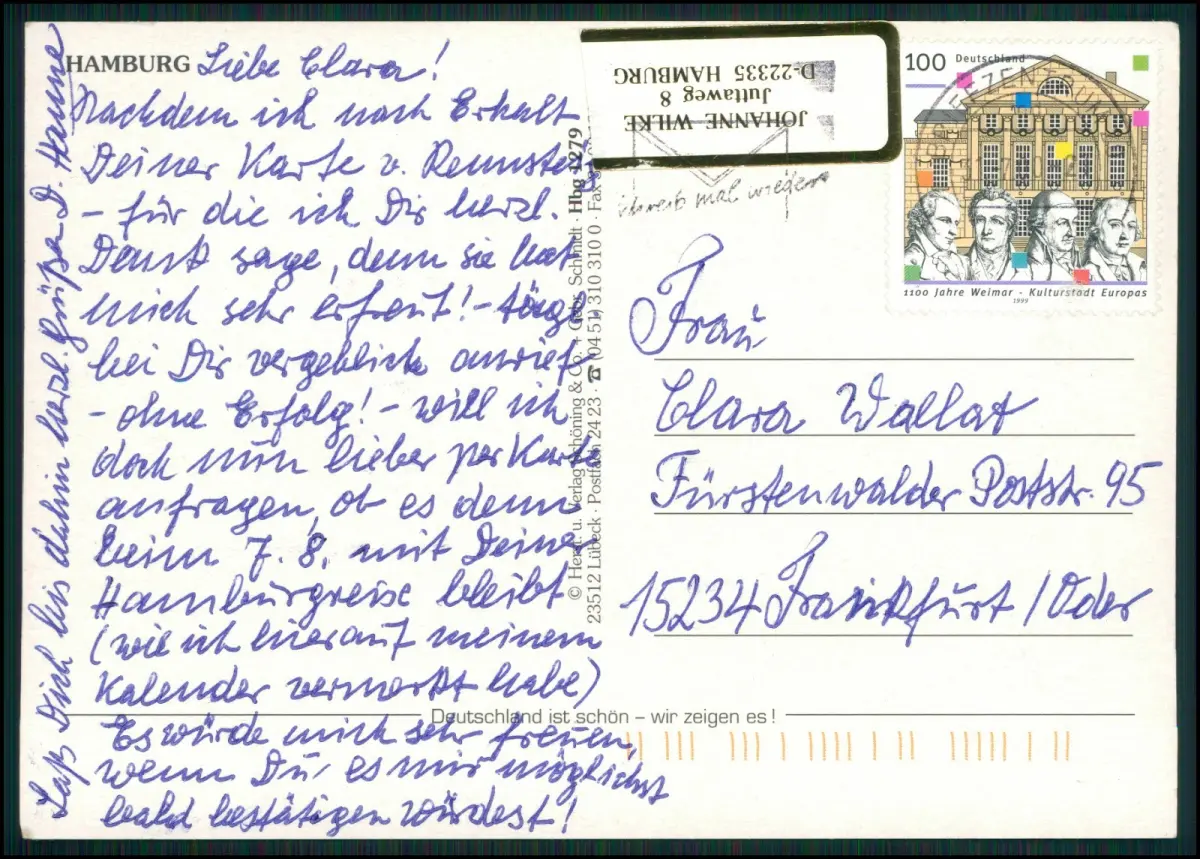 HAMBURG Liebe Clara!
Nachdem ich nach Erhalt
Deiner Karte v. Rennsteig
- für die ich Dir herzl.
Dank sage, denn sie hat
mich sehr erfreut! -
bei Dir vergeblich anrief
- ohne Erfolg! - will ich
doch nun lieber per Karte
anfragen, ob es denn
beim 7. 8. mit Deiner
Hamburgreise bleibt
(wie ich hier auf meinem
Kalender vermerkt habe)
Es würde mich sehr freuen,
wenn Du es mir möglichst
bald bestätigen würdest!
Laß Dich bis dahin herzl. grüßen D. Hanne
JOHANNE WILKE
Juttaweg 8
D-22335 HAMBURG
schreib mal wieder
100 Deutschland
1100 Jahre Weimar - Kulturstadt Europas
1999
Frau
Clara Wallat
Fürstenwalder Poststr. 95
15234 Frankfurt / Oder
© Herst. u. Verlag Schöning & Co. + Gebr. Schmidt · Hbg 4279
23512 Lübeck · Postfach 24 23 · ☎ (04 51) 310 310 0 · Fax
Deutschland ist schön – wir zeigen es!